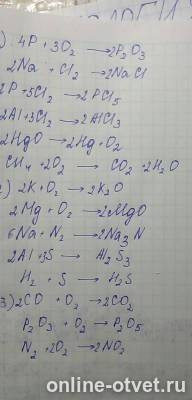 ) 4P + 3O₂ → 2P₂O₃
2Na + Cl₂ → 2NaCl
2P + 5Cl₂ → 2PCl₅
2Al + 3Cl₂ → 2AlCl₃
2HgO → 2Hg + O₂
CH₄ + 2O₂ → CO₂ + 2H₂O
) 2K + O₂ → 2K₂O
2Mg + O₂ → 2MgO
6Na + N₂ → 2Na₃N
2Al + 3S → Al₂S₃
H₂ + S → H₂S
3) 2CO + O₂ → 2CO₂
P₂O₃ + O₂ → P₂O₅
N₂ + 2O₂ → 2NO₂
online-otvet.ru